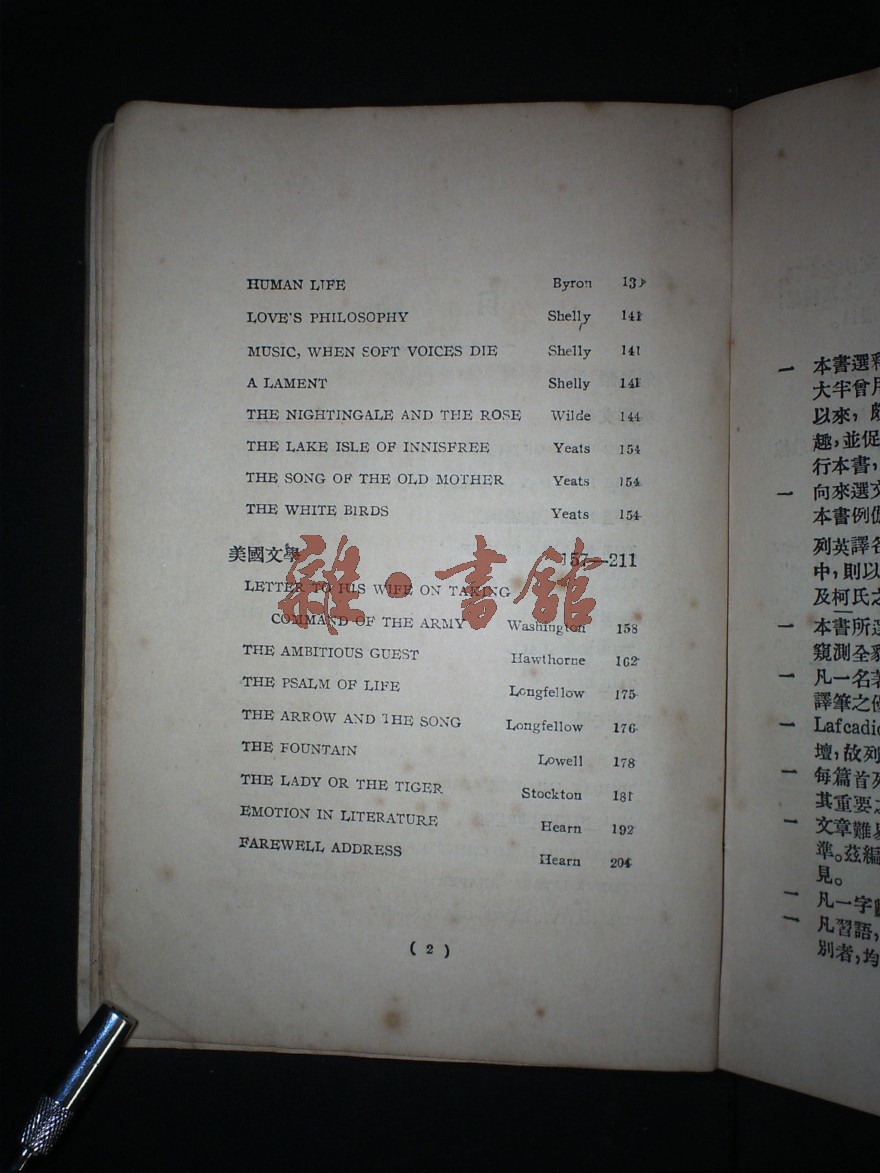 HUMAN LIFE Byron
LOVE'S PHILOSOPHY Shelly 141
MUSIC, WHEN SOFT VOICES DIE Shelly 141
A LAMENT Shelly 141
THE NIGHTINGALE AND THE ROSE Wilde 144
THE LAKE ISLE OF INNISFREE Yeats 154
THE SONG OF THE OLD MOTHER Yeats 154
THE WHITE BIRDS Yeats 154
美國文學 157—211
LETTER TO HIS WIFE ON TAKING
COMMAND OF THE ARMY Washington 158
THE AMBITIOUS GUEST Hawthorne 162
THE PSALM OF LIFE Longfellow 175
THE ARROW AND THE SONG Longfellow 176
THE FOUNTAIN Lowell 178
THE LADY OR THE TIGER Stockton 181
EMOTION IN LITERATURE Hearn 192
FAREWELL ADDRESS Hearn 204
( 2 )
雜·書館
一 本書選釋
大半曾用
以來，頗
趣，並促
行本書，
一 向來選文
本書例
列英譯名
中，則以
及柯氏之
一 本書所選
窺測全豹
一 凡一名著
譯筆之優
一 Lafcadio
壇，故列
一 每篇首列
其重要之
一 文章難易
準。茲編
見。
一 凡一字
一 凡習語，
別者，均